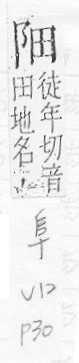 徒年切音
田地名
阜
V12
P30